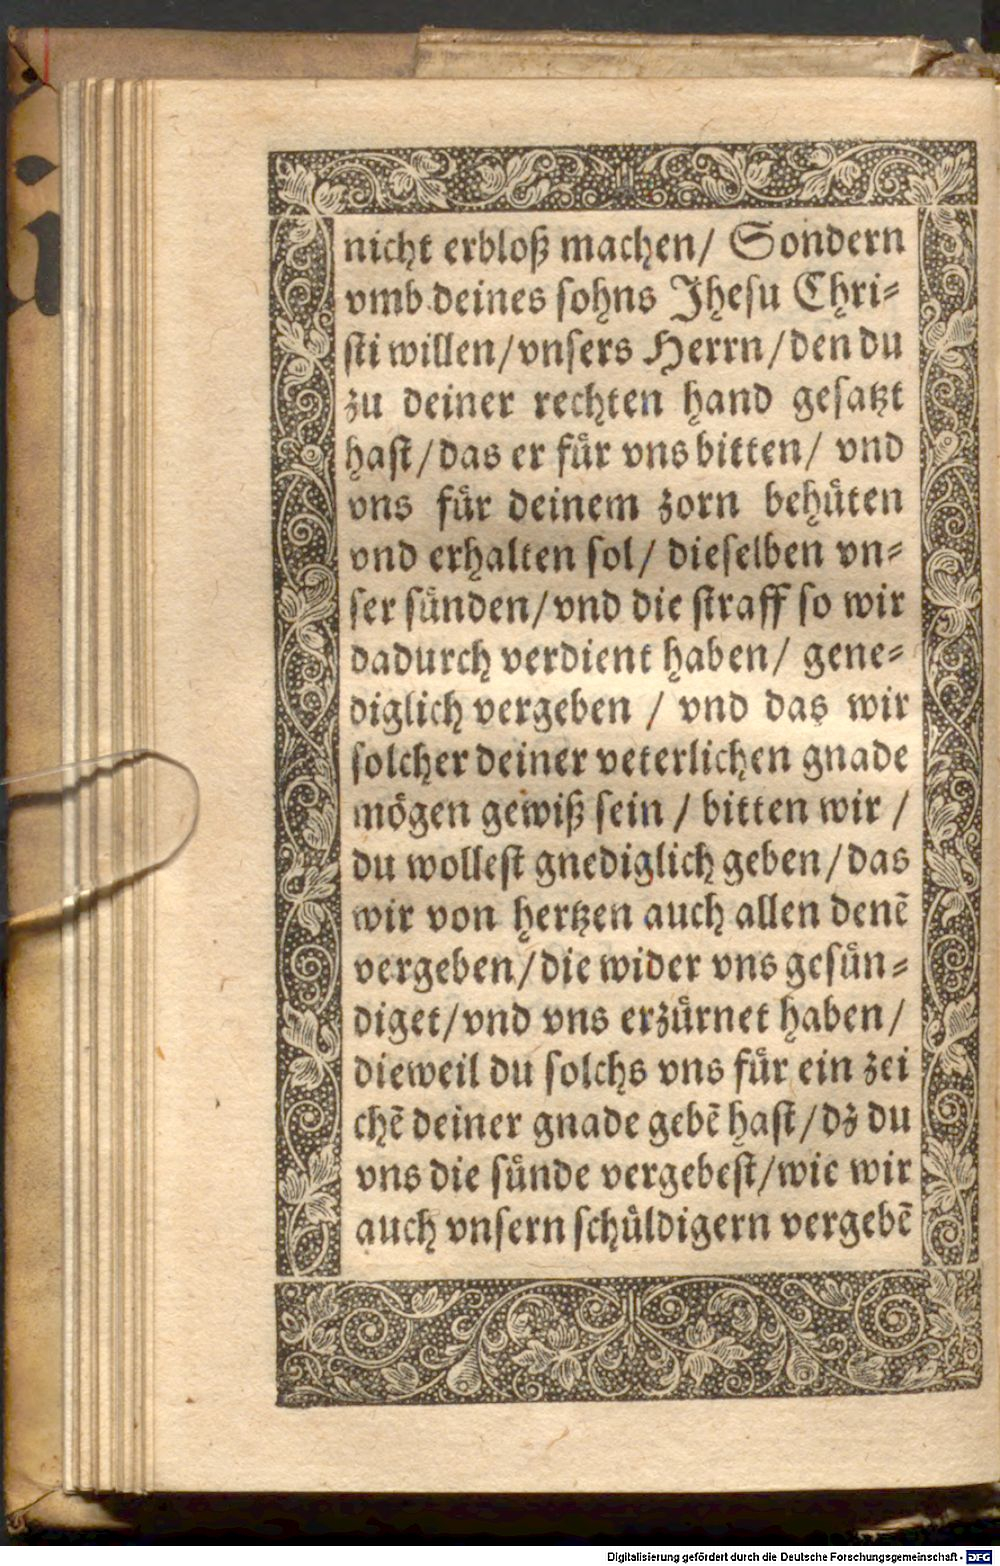 nicht erbloß machen/ Sondern
vmb deines sohns Jhesu Chri-
sti willen/vnsers Herrn/den du
zu deiner rechten hand gesatzt
hast/das er fuͤr vns bitten/ vnd
vns fuͤr deinem zorn behuͤten
vnd erhalten sol/ dieselben vn-
ser suͤnden/vnd die straff so wir
dadurch verdient haben/ gene-
diglich vergeben / vnd das wir
solcher deiner veterlichen gnade
moͤgen gewiß sein / bitten wir /
du wollest gnediglich geben/das
wir von hertzen auch allen denē
vergeben/die wider vns gesuͤn-
diget/vnd vns erzuͤrnet haben/
dieweil du solchs vns fuͤr ein zei
chē deiner gnade gebē hast/dz du
vns die suͤnde vergebest/wie wir
auch vnsern schuͤldigern vergebē
Digitalisierung gefördert durch die Deutsche Forschungsgemeinschaft - DFG